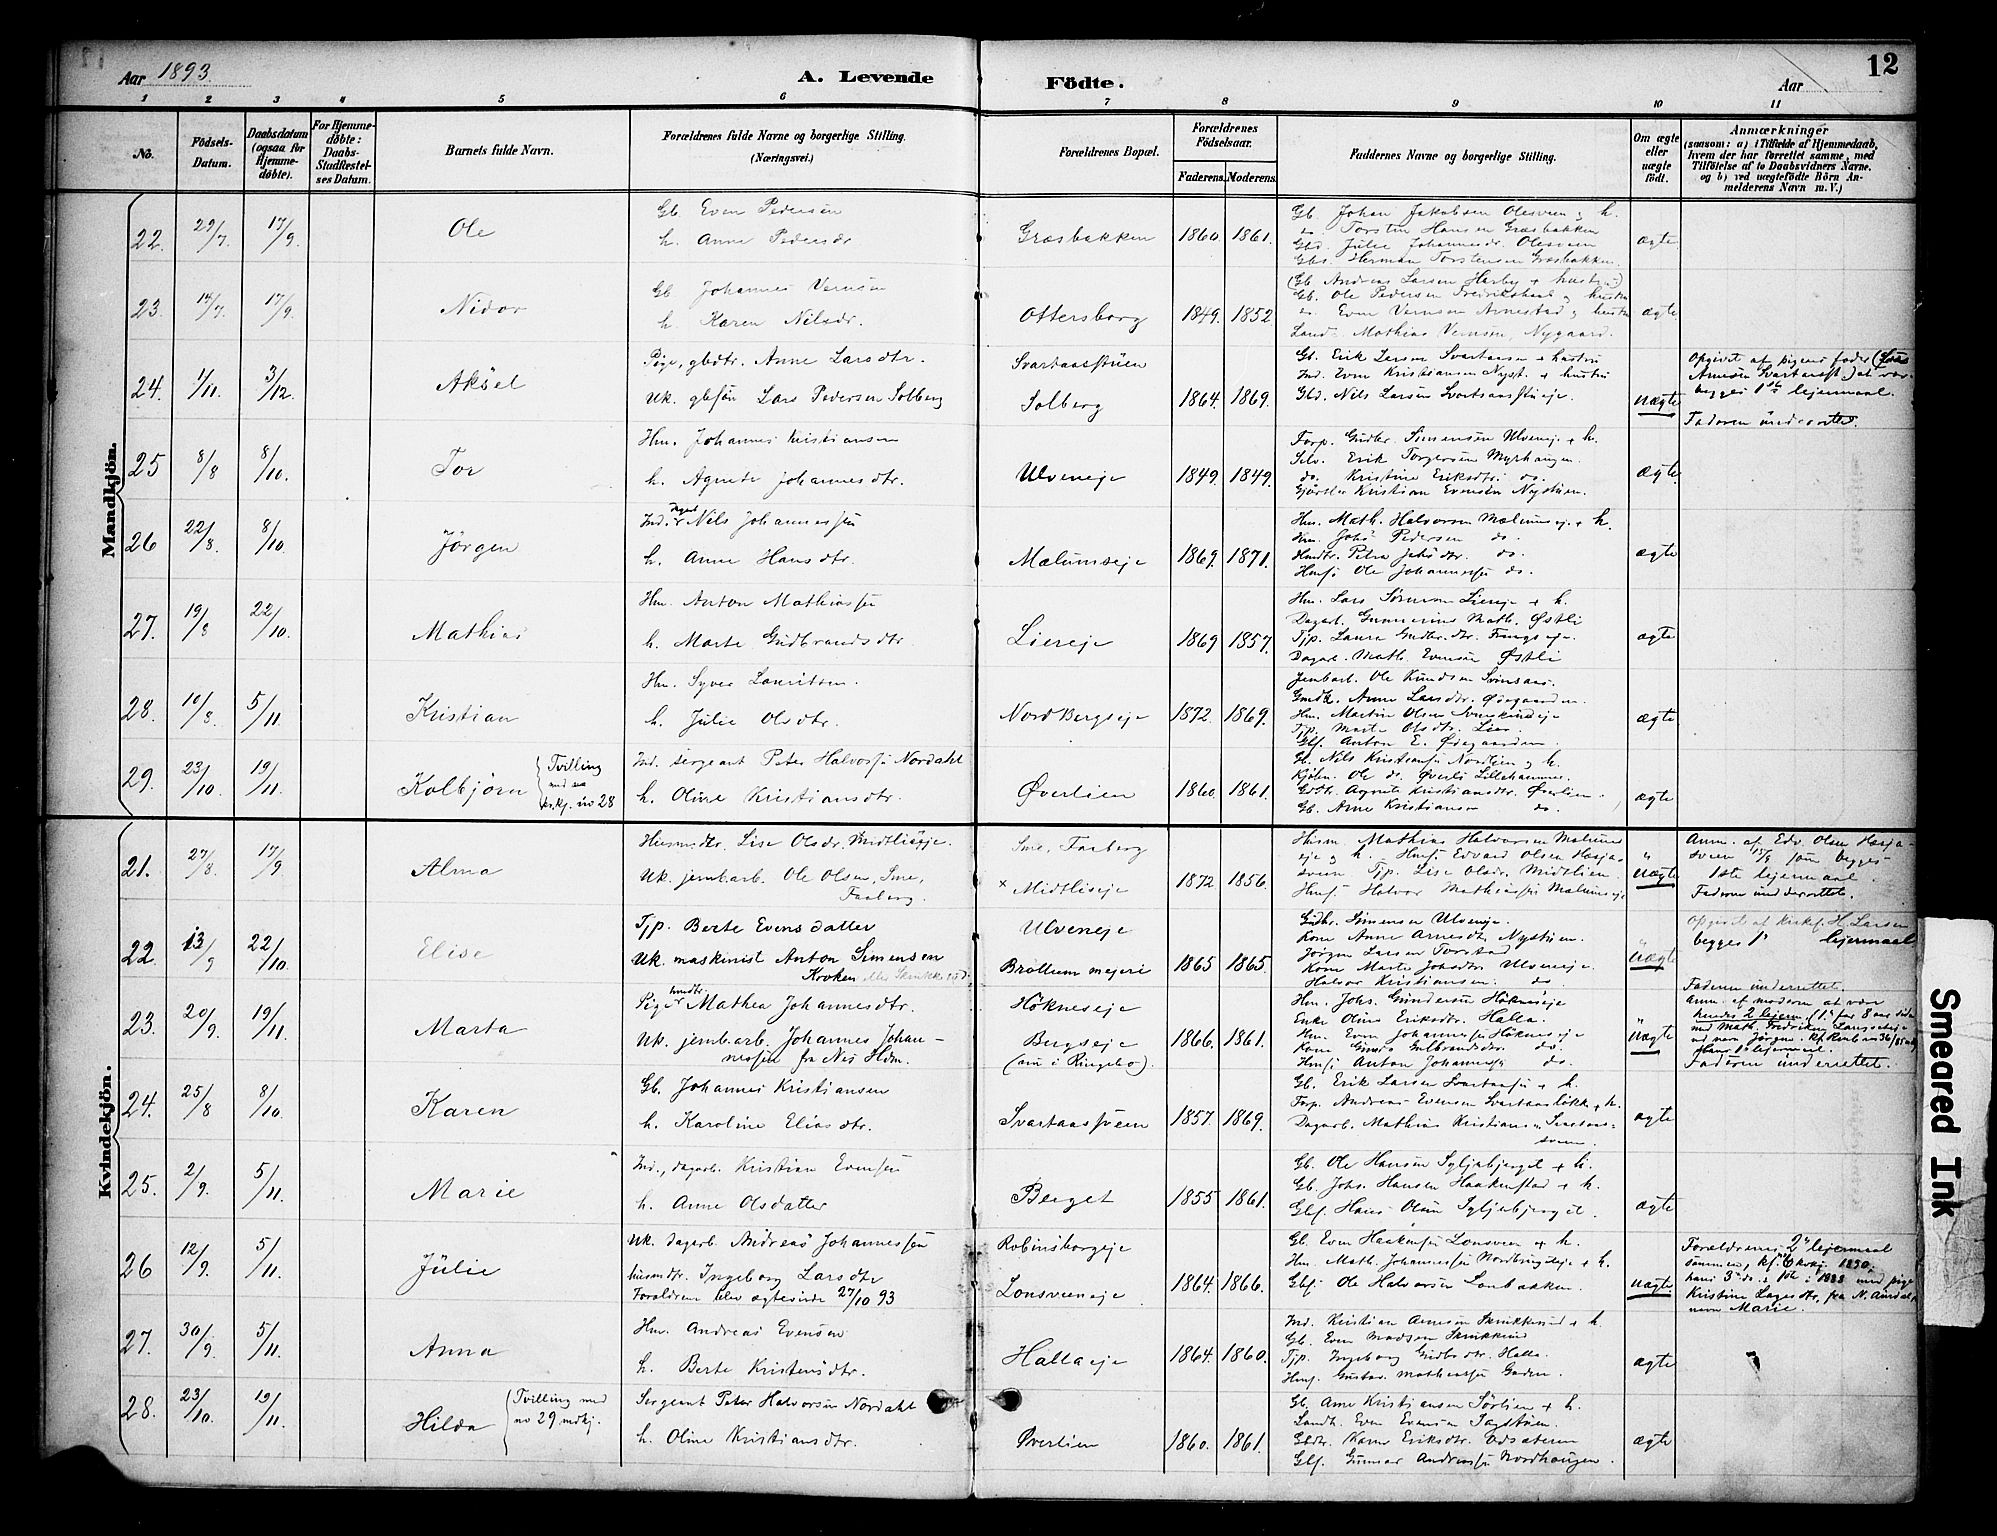 Aar 1893.
A. Levende Födte.
Aar
12
1 2 3 4 5 6 7 8 9 10 11
No.
Födsels-Datum.
Daabsdatum (ogsaa for Hjemme-døbte).
For Hjemme-døbte: Daabs-Stadfæstel-ses Datum.
Barnets fulde Navn.
Forældrenes fulde Navne og borgerlige Stilling. (Næringsvei.)
Forældrenes Bopæl.
Forældrenes Födselsaar.
Faderens. Moderens.
Faddernes Navne og borgerlige Stilling.
Om ægte eller uægte födt.
Anmærkninger (saasom: a) i Tilfælde af Hjemmedaab, hvem der har forrettet samme, med Tilföielse af to Daabsvidners Navne. og b) ved uægtefödte Börn An-melderens Navn m. V.)
Mandkjön.
22. 29/7. 17/9. Ole
Gb. Even Pedersen
h. Anne Pedersdr
Græsbakken 1860. 1861.
Gb. Johan Jakobsen Olesveen og h.
do Torsten Hansen Græsbakken
Gbd. Julie Johannesdr. Olesveen
Gbs. Herman Torstensen Græsbakken
ægte
23. 14/7. 17/9. Nidor
Gb Johannes Vernsen
h. Karen Nilsdr.
Ottersborg 1849. 1852
(Gb. Andreas Larsen Harby + hustru)
Gb. Ole Pedersen Fredrikstad og hustru
do. Even Vernsen Arnestad og hustru
Land. Mathias Vernsen, Nygaard.
ægte
24. 1/11. 3/12. Aksel
Pige, gbdtr. Anne Larsdtr.
Uk. gbsön Lars Pedersen Solberg
Svartaasstuen
Solberg 1864. 1869.
Gb. Erik Larsen Svartaasen + hustru
Ind. Even Kristiansen Nyst. + hustru
Gbd. Nils Larsen Svartaasstueje.
uægte
Opgivet af pigens fader (Lars
Arnesen Svartaasst.) at var
begges 1ste lejermaal.
Faderen underrettet.
25 8/8 8/10. Tor
Hm. Johannes Kristiansen
h. Agnete Johannesdtr.
Ulveneje 1849. 1849.
Forp. Gudbr. Simensen Ulveneje + h.
Selv. Erik Torgersen Myrhaugen.
do. Kristine Eriksdtr. do.
Gjörtler Kristian Evensen Nystuen.
ægte.
26 22/8. 8/10. Jörgen
Ind. Nils Johannessen
h. Anne Hansdtr.
Mælumseje 1869. 1871.
Hm. Math. Halvorsen Mælumseje + h.
Hm. Johs Pedersen do.
Hmdtr. Petra Johsdtr. do.
Hmsö Ole Johannessen do.
ægte
27. 19/8 22/10. Mathias
Hm. Anton Mathiassen
h. Marte Gudbrandsdtr.
Liereje 1869 1857.
Hm. Lars Sörensen Liereje + h.
Dagarb. Gunnerius Math. Østli
Tjp. Laura Gudbr.dtr. Fangseje.
Dagarb. Math. Evensen Østli
ægte
28. 10/8. 5/11. Kristian
Hm. Syver Lauritsen.
h. Julie Olsdtr.
Nord Bergseje 1872. 1869.
Jernbarb. Ole Knudsen Svinsaas.
Gmdk. Anne Larsdtr. Ødegaarden.
Hm. Martin Olsen
Tjp. Marte Olsdtr. Lier.
Gbf. Anton E. Ødegaarden.
ægte
29. 23/10. 19/11. Kolbjörn
{Tvilling
med
kv.kj. nr 28
Ind. sergeant Peter Halvorsen Nordahl
h. Oline Kristiansdtr.
Øverlien 1860. 1861.
Gb. Nils Kristiansen Nordlien og h.
Kjöbm. Ole do. Øverli Lillehammer.
Gdbtr. Agnete Kristiansdtr. Øverlien.
Gb. Arne Kristiansen do.
ægte
Kvindekjön.
21. 27/8. 17/9 Alma
Husmdtr. Lise Olsdr. Midtlieeje.
Uk. jernb.arb. Ole Olsen, Sme,
Faaberg.
Sme, Faaberg
x Midtlieeje 1872 1856.
Husm. Mathias Halvorsen Mælums
eje og h. Hmsö Edvard Olsen Hasja-
sveen Tjp. Lise Olsdr. Midtlien.
Hmsö Halvor Mathiassen Mælumseje
uægte
Anm. af Edv. Olsen Hasja-
sveen 15/9 som begges
1ste lejermaal.
Faderen underrettet.
22. 13/9 22/10. Elise
Tjp. Berte Evensdatter
Uk. maskinist Anton Simensen
Kroken
Ulveneje
Bröttum mejeri 1865 1865.
Gudbr. Simensen Ulveneje.
Kone Anne Arnesdtr. Nystuen.
Jörgen Larsen Torstad
Kone Marte Johsdtr Ulveneje.
Halvor Kristiansen. do.
uægte
Opgivet af kirkes. H. Larsen
begges 1s lejermaal
Faderen underrettet.
23. 20/9. 19/11. Marta
Pige hmdtr. Mathea Johannesdtr.
Uk. jernb.arb. Johannes Johan-
nessen fra Næs Hdm.
Høkneseje
Bergseje 1866. 1861.
(nu i Ringebo).
Hm. Johs. Gundersen Høkneseje
Enke Oline Eriksdtr. Halla.
Hm. Even Johannessen Høkneseje
Kone Gunda Gulbrandsdtr. do.
Hmsö Anton Johannessen do.
uægte
Anm. af moderen at var
hendes 2 lejerm. (1s for 8 aar siden
med Math. Fredriksen
Hans 1s lejermaal.
Faderen underrettet.
24. 25/8 8/10. Karen
Gb. Johannes Kristiansen
h. Karoline Eliasdtr.
Svartaasstuen 1857. 1869.
Gb. Erik Larsen Svartaasen + h.
Forp. Andreas Evensen Svartaaslökk. + h.
Dagarb. Mathias Kristians.
ægte
25. 2/9. 5/11. Marie
Ind., dagarb. Kristian Evensen
h. Anne Olsdatter
Berget 1855 1861.
Gb. Ole Hansen Syljebjerget + h.
Gb. Johs. Hansen Haakenstad + h.
Gbf. Hans Olsen Syljebjerget.
ægte
26 12/9. 5/11. Julie
Uk. dagarb. Andreas Johannessen
husmdtr. Ingeborg Larsdtr
Forældrene blev ægteviede 27/10 93
Robinsborgeje
Lonsveeneje 1864. 1866.
Gb. Even Haakensen Lonsveen + h.
Hm. Math. Johannessen Nordbergseje + h.
Gbf. Ole Halvorsen Lonbakken.
uægte
Forældrenes 2 lejermaal
sammen, kf. No 6 kvkj. 1890,
hans 3 do., 1ste i 1888 med pige
Kristine Lagesdtr. fra N. Aurdal,
navn Marie.
27. 30/9. 5/11. Anna
Hm. Andreas Evensen
h. Berte Kristensdtr.
Hallaeje 1864. 1860.
Ind. Kristian Arnesen Skrukkerud + h.
Gb. Even Madsen Skrukkerud
Tjp. Ingeborg Gudbr.dtr. Halla.
Hmf. Gustav Mathiassen Gaden.
ægte
28. 23/10. 19/11. Hilda
{Tvilling med
nr 29 mdkj.
Sergeant Peter Halvorsen Nordahl
h. Oline Kristiansdtr.
Øverlien 1860. 1861.
Gb. Arne Kristiansen Sörlien + h.
Landh. Even Evensen Sagstuen.
Gbdtr. Karen Eriksdtr. Odsæteren
Gbf. Gunnar Andreassen Nordhaugen.
ægte
Smeared Ink